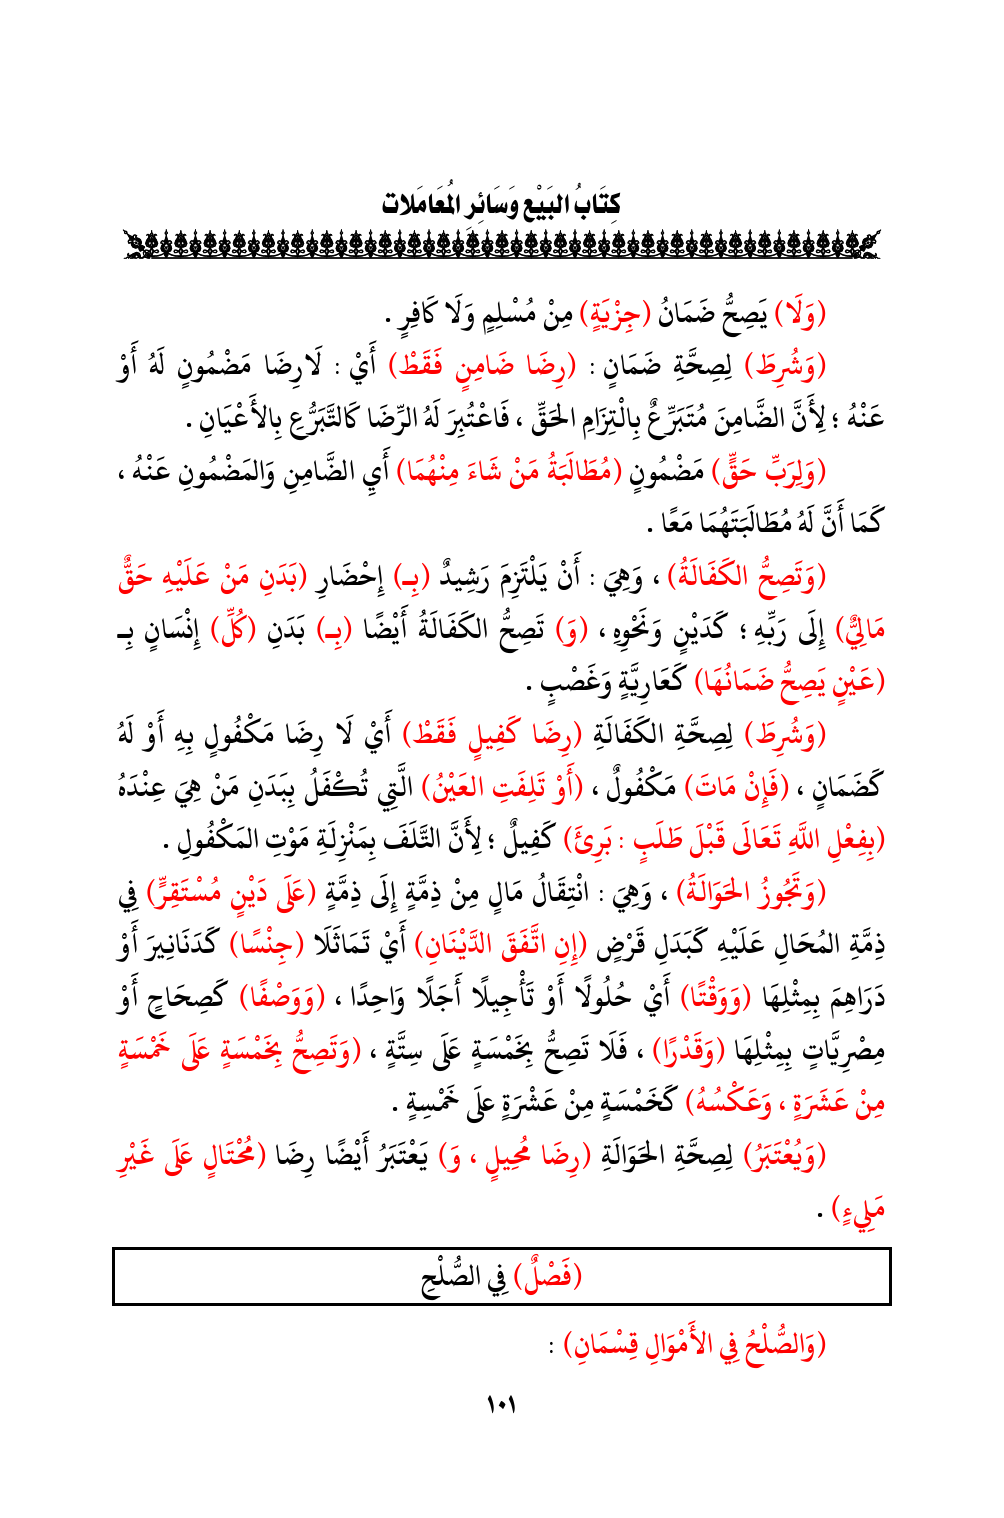 كِتَابُ البَيْعِ وَسَائِرِ المُعَامَلات
(وَلَا) يَصِحُّ ضَمَانُ (جِزْيَةٍ) مِنْ مُسْلِمٍ وَلَا كَافِرٍ .
(وَشُرِطَ) لِصِحَّةِ ضَمَانٍ : (رِضَا ضَامِنٍ فَقَطْ) أَيْ : لَارِضَا مَضْمُونٍ لَهُ أَوْ
عَنْهُ ؛ لِأَنَّ الضَّامِنَ مُتَبَرِّعٌ بِالْتِزَامِ الحَقِّ ، فَاعْتُبِرَ لَهُ الرِّضَا كَالتَّبَرُّعِ بِالأَعْيَانِ .
(وَلِرَبِّ حَقٍّ) مَضْمُونٍ (مُطَالَبَةُ مَنْ شَاءَ مِنْهُمَا) أَيِ الضَّامِنِ وَالمَضْمُونِ عَنْهُ ،
كَمَا أَنَّ لَهُ مُطَالَبَتَهُمَا مَعًا .
(وَتَصِحُّ الكَفَالَةُ) ، وَهِيَ : أَنْ يَلْتَزِمَ رَشِيدٌ (بِـ) إِحْضَارِ (بَدَنِ مَنْ عَلَيْهِ حَقٌّ
مَالِيٌّ) إِلَى رَبِّهِ ؛ كَدَيْنٍ وَنَحْوِهِ ، (وَ) تَصِحُّ الكَفَالَةُ أَيْضًا (بِـ) بَدَنِ (كُلِّ) إِنْسَانٍ بِـ
(عَيْنٍ يَصِحُّ ضَمَانُهَا) كَعَارِيَّةٍ وَغَصْبٍ .
(وَشُرِطَ) لِصِحَّةِ الكَفَالَةِ (رِضَا كَفِيلٍ فَقَطْ) أَيْ لَا رِضَا مَكْفُولٍ بِهِ أَوْ لَهُ
كَضَمَانٍ ، (فَإِنْ مَاتَ) مَكْفُولٌ ، (أَوْ تَلِفَتِ العَيْنُ) الَّتِي تُكْفَلُ بِبَدَنِ مَنْ هِيَ عِنْدَهُ
(بِفِعْلِ اللَّهِ تَعَالَى قَبْلَ طَلَبٍ : بَرِئَ) كَفِيلٌ ؛ لِأَنَّ التَّلَفَ بِمَنْزِلَةِ مَوْتِ المَكْفُولِ .
(وَتَجُوزُ الحَوَالَةُ) ، وَهِيَ : انْتِقَالُ مَالٍ مِنْ ذِمَّةٍ إِلَى ذِمَّةٍ (عَلَى دَيْنٍ مُسْتَقِرٍّ) فِي
ذِمَّةِ المُحَالِ عَلَيْهِ كَبَدَلِ قَرْضٍ (إِنِ اتَّفَقَ الدَّيْنَانِ) أَيْ تَمَاثَلَا (جِنْسًا) كَدَنَانِيرَ أَوْ
دَرَاهِمَ بِمِثْلِهَا (وَوَقْتًا) أَيْ حُلُولًا أَوْ تَأْجِيلًا أَجَلًا وَاحِدًا ، (وَوَصْفًا) كَصِحَاحٍ أَوْ
مِصْرِيَّاتٍ بِمِثْلِهَا (وَقَدْرًا) ، فَلَا تَصِحُّ بِخَمْسَةٍ عَلَى سِتَّةٍ ، (وَتَصِحُّ بِخَمْسَةٍ عَلَى خَمْسَةٍ
مِنْ عَشَرَةٍ ، وَعَكْسُهُ) كَخَمْسَةٍ مِنْ عَشْرَةٍ علَى خَمْسِةٍ .
(وَيُعْتَبَرُ) لِصِحَّةِ الحَوَالَةِ (رِضَا مُحِيلٍ ، وَ) يَعْتَبَرُ أَيْضًا رِضَا (مُحْتَالٍ عَلَى غَيْرِ
مَلِيءٍ) .
(فَصْلٌ) فِي الصُّلْحِ
(وَالصُّلْحُ فِي الأَمْوَالِ قِسْمَانِ) :
١٠١